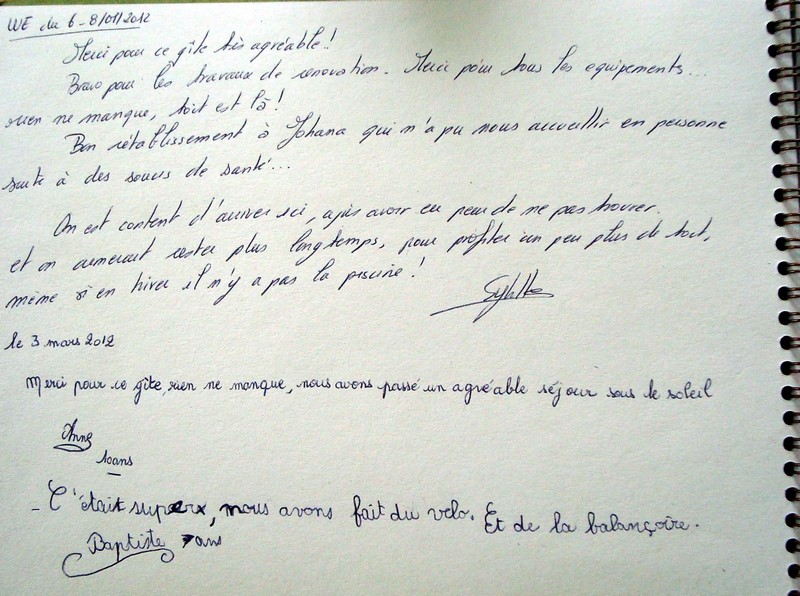 WE du 6-8/01/2012
Merci pour ce gîte très agréable!!
Bravo pour les travaux de renovation. Merci pour tous les equipements...
rien ne manque, tout est là!
Bon rétablissement à Johana qui n'a pu nous accueillir en personne
suite à des soucis de santé...
On est content d'arriver ici, après avoir eu peur de ne pas trouver.
et on aimerait rester plus longtemps, pour profiter un peu plus de tout,
même si en hiver il n'y a pas la piscine!
Sybille
le 3 mars 2012
Merci pour ce gîte, rien ne manque, nous avons passé un agréable séjour sous le soleil
Anne
10ans
- C'était super, nous avons fait du velo. Et de la balançoire.
Baptiste 7ans